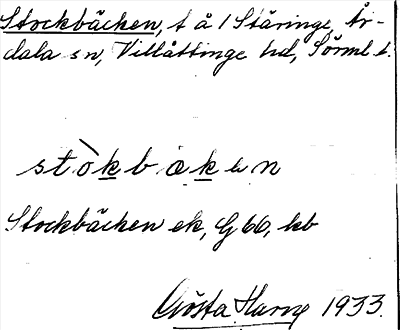 Stockbäcken, t å 1 Stäringe, År-
dala sn, Villåttinge hd, Sörml l.
stòkbækən
Stockbäcken ek, G 66, kb
Gösta Harng 1933.